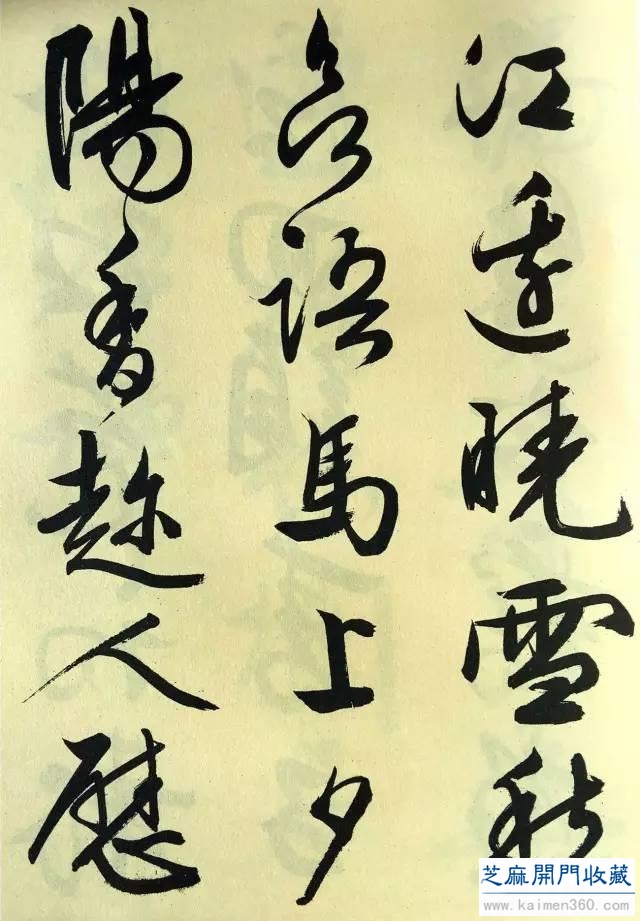 江邊曉雪愁
欲語馬上夕
陽香趂人慰
芝麻開門收藏
www.kaimen360.com